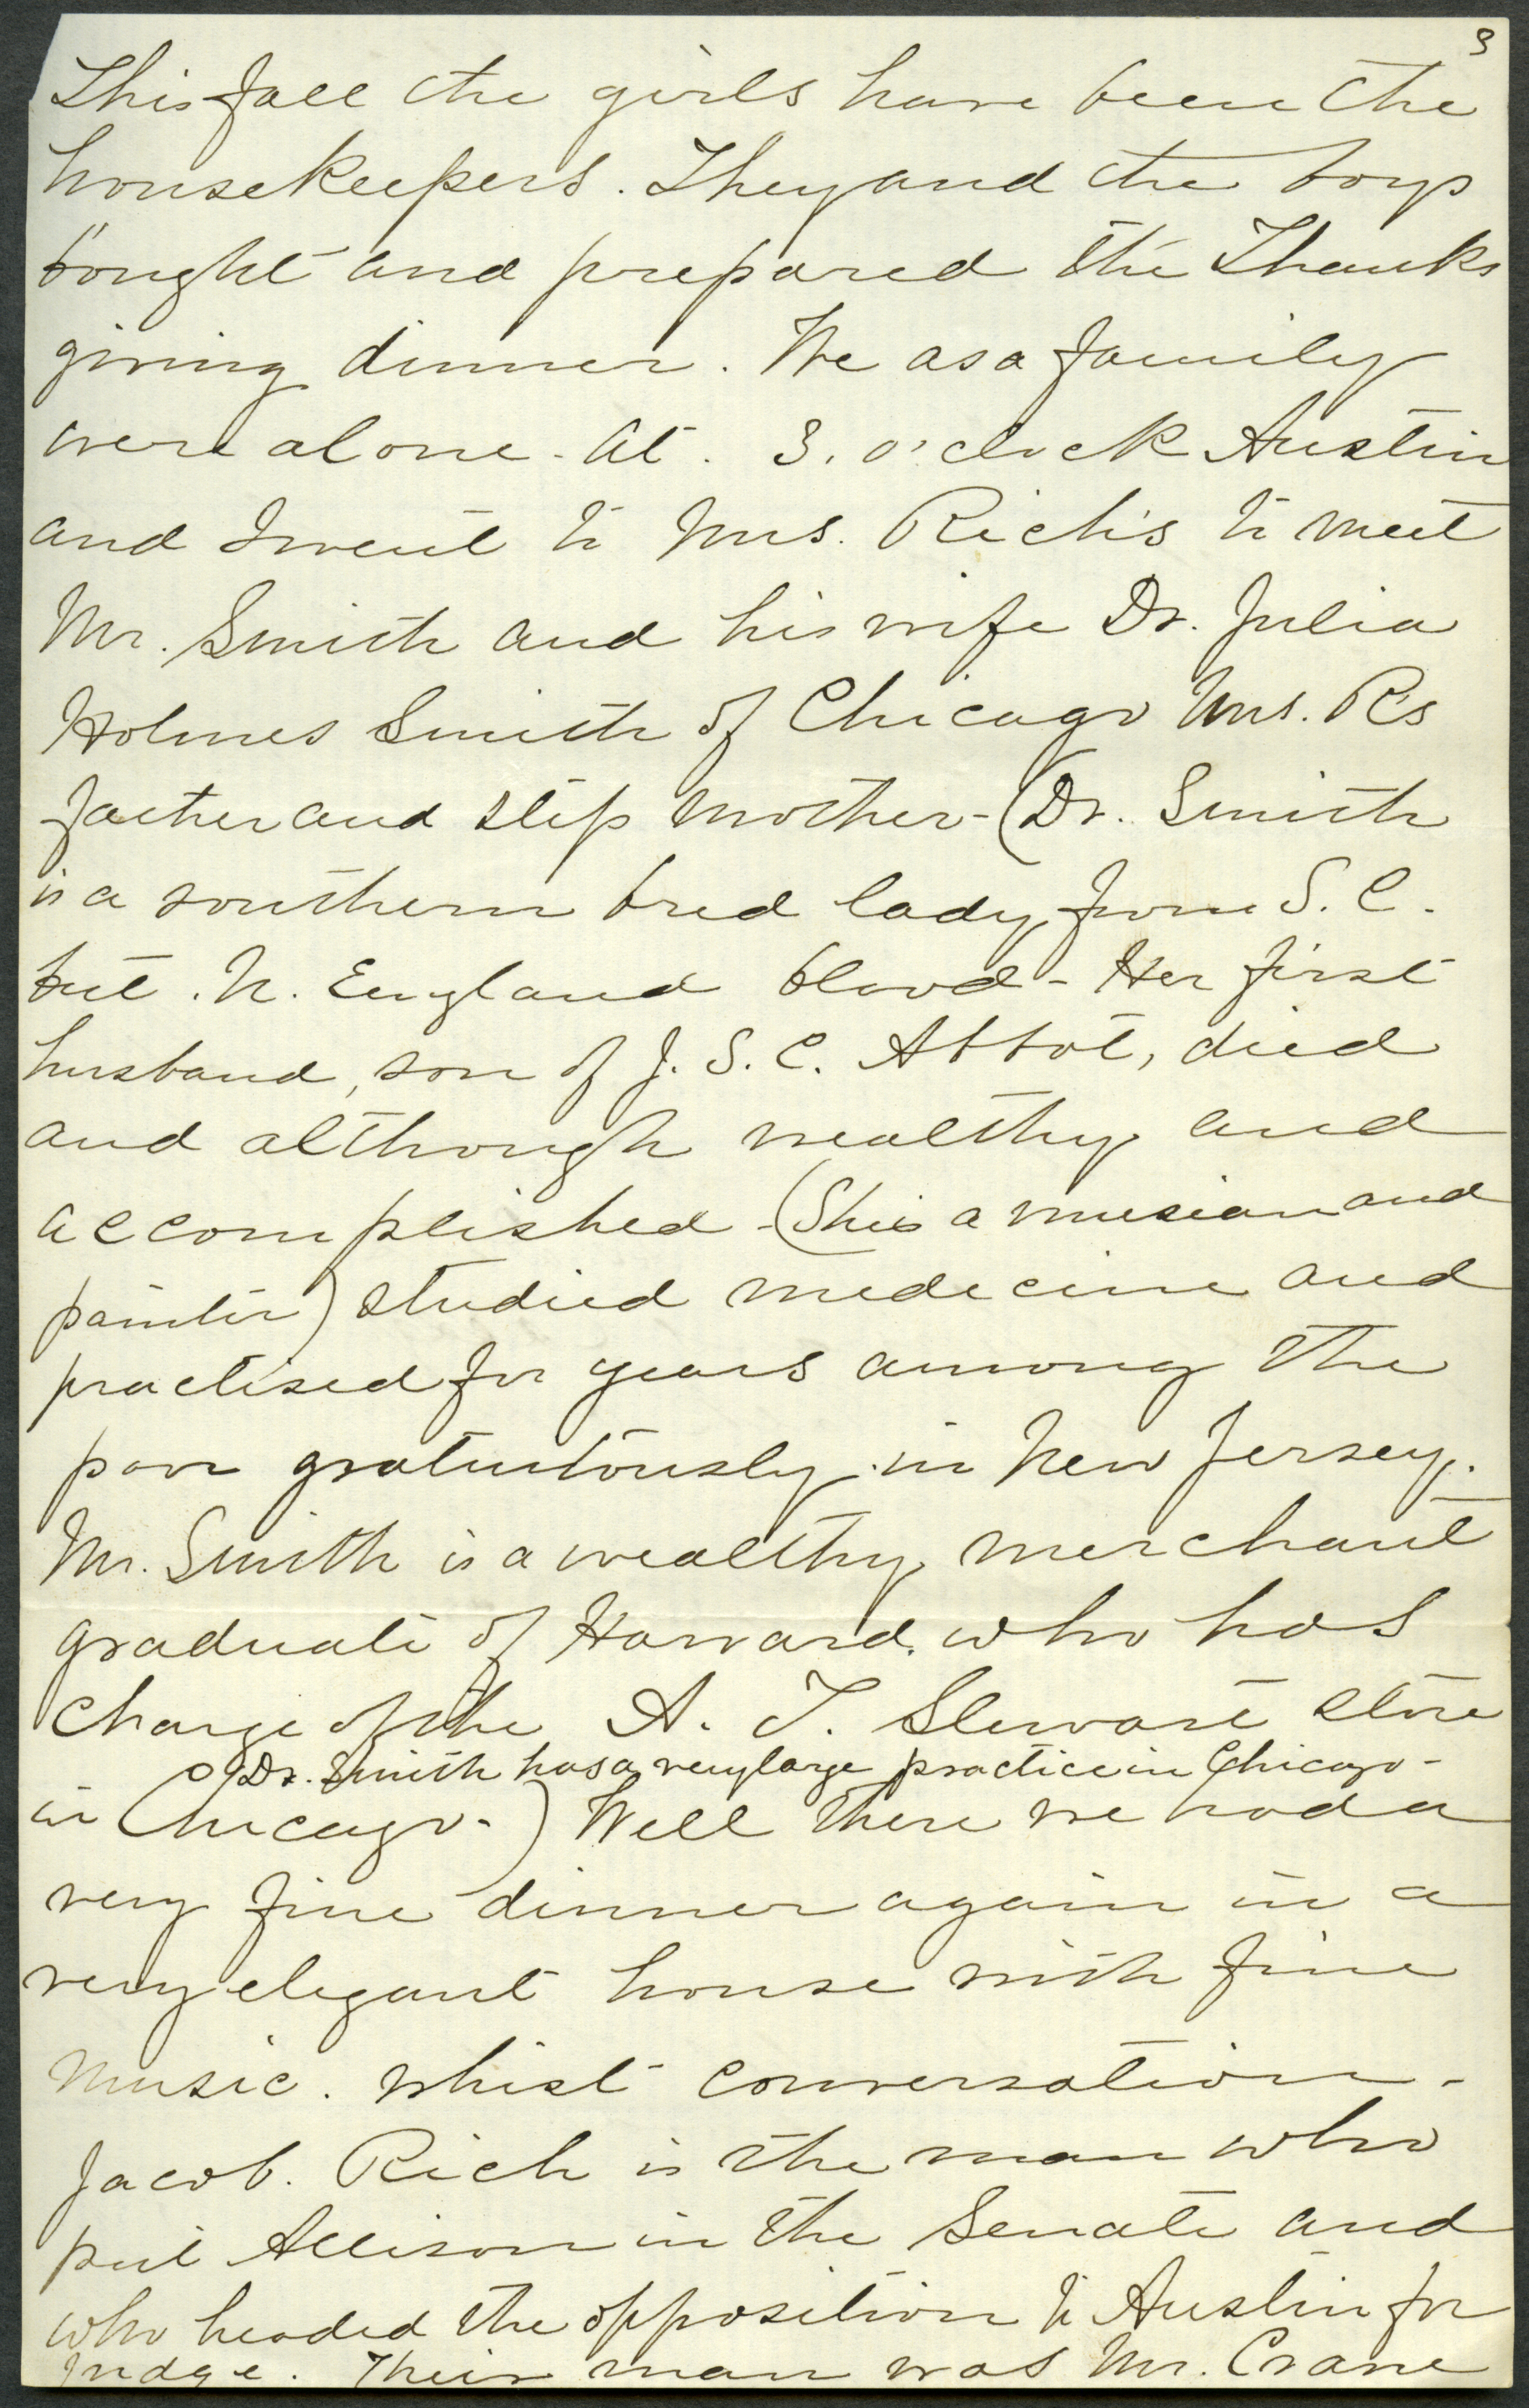 3
This fall the girls have been the
housekeepers. They and the boys
bought and prepared the Thanks
giving dinner. We as a family
were alone. At. 3. o'clock Austin
and I went to Mrs. Rich's to meet
Mr. Smith and his wife Dr. Julia
Holmes Smith of Chicago Mrs. R's
father and step mother - (Dr. Smith
is a southern bred lady from S. C.
but. N. England blood - Her first
husband, son of J. S. C. Abbot, died
and although wealthy and
accomplished - (She is a musician and
painter) studied medecine and
practised for years among the
poor gratuitously in New Jersey.
Mr. Smith is a wealthy merchant
graduate of Harvard. who has
charge of the A. T. Stewart store
Dr. Smith has a very large practice in Chicago -
in Chicago - ) Well there we had a
very fine dinner again in a
very elegant house with fine
music. whist conversation -
Jacob. Rich is the man who
put Allison in the Senate and
who headed the opposition to Austin for
Judge. Their man was Mr. Crane